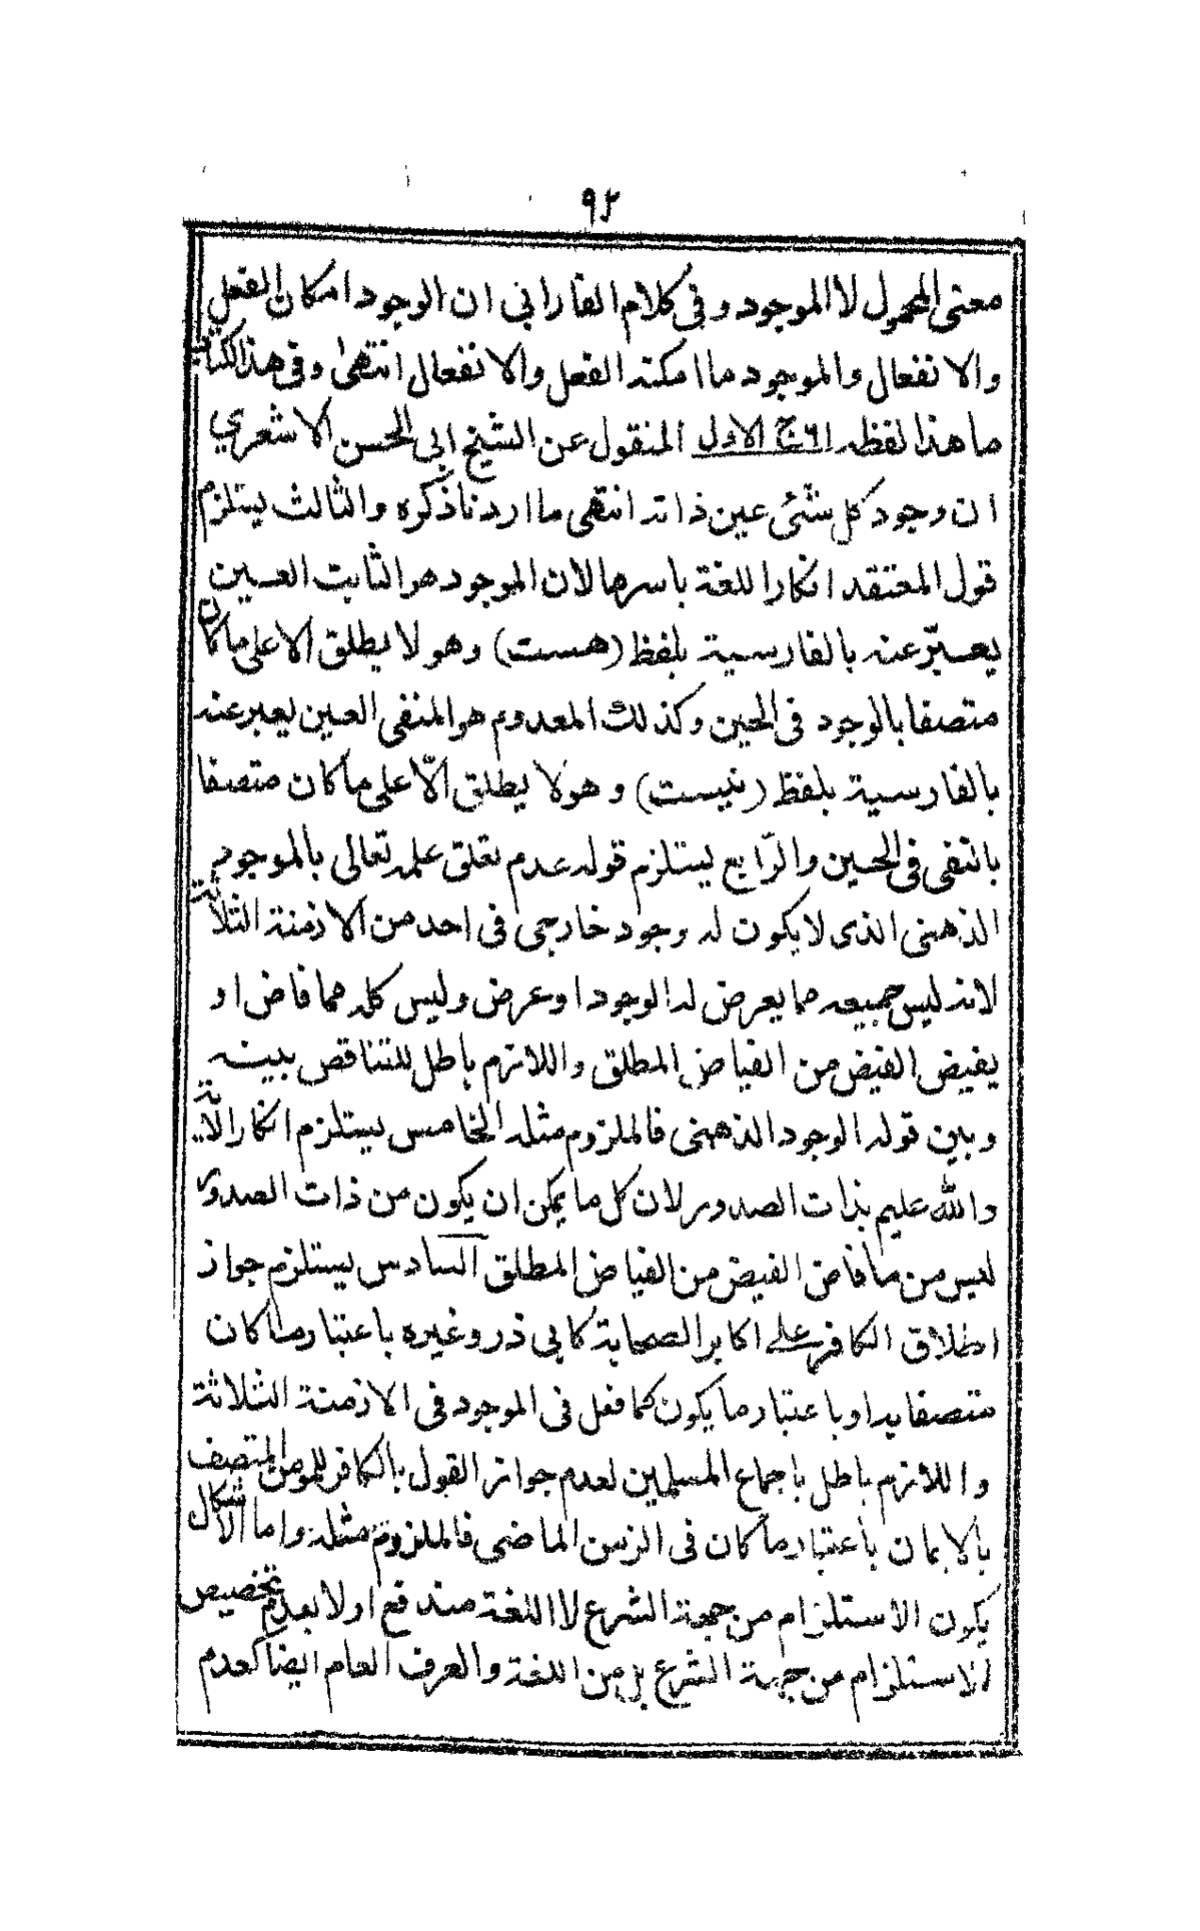 ٩٢
معنى المحمول لا الموجود وفى كلام الفارابي ان الوجود امكان الفعل
والانفعال والموجود ما امكنه الفعل والانفعال انتهى وفى هذا الكتاب
ما هذا لفظه ج الاول المنقول عن الشيخ ابى الحسن الاشعري
ان وجود كل شئى عين ذاته انتهى ما اردنا ذكره والثالث يستلزم
قول المعتقد انكار اللغة باسرها لان الموجود هو الثابت العين
يعبّر عنه بالفارسية بلفظ (هست) وهو لا يطلق الا على ما كان
متصفا بالوجود فى الحين وكذلك المعدوم هو المنفى العين يعبر عنه
بالفارسية بلفظ (نيست) وهو لا يطلق الّا على ما كان متصفا
بالنفى فى الحين والرّابع يستلزم قوله عدم تعلق علمه تعالى بالموجود
الذهنى الذى لا يكون له وجود خارجى فى احد من الازمنة الثلاثة
لانه ليس جميعه مما يعرض له الوجود او عرض وليس كله مما فاض او
يفيض الفيض من الفياض المطلق واللازم باطل للتناقض بينه
وبين قوله الوجود الذهنى فالملزوم مثله الخامس يستلزم انكار الاية
والله عليم بذات الصدور لان كل ما يمكن ان يكون من ذات الصدور
ليس من ما فاض الفيض من الفياض المطلق السادس يستلزم جواز
اطلاق الكافر على اكابر الصحابة كابى ذر وغيره باعتبار ما كان
متصفا به او باعتبار ما يكون كما فعل فى الموجود فى الازمنة الثلاثة
واللازم باطل باجماع المسلمين لعدم جواز القول بالكافر للمومن المتصف
بالايمان باعتبار ما كان فى الزمن الماضى فالملزوم مثله واما الاشكال
بكون الاستلزام من جهة الشرع لا اللغة مندفع اولا بعدم تخصيص
الاستلزام من جهة الشرع بل من اللغة والعرف العام ايضا كعدم